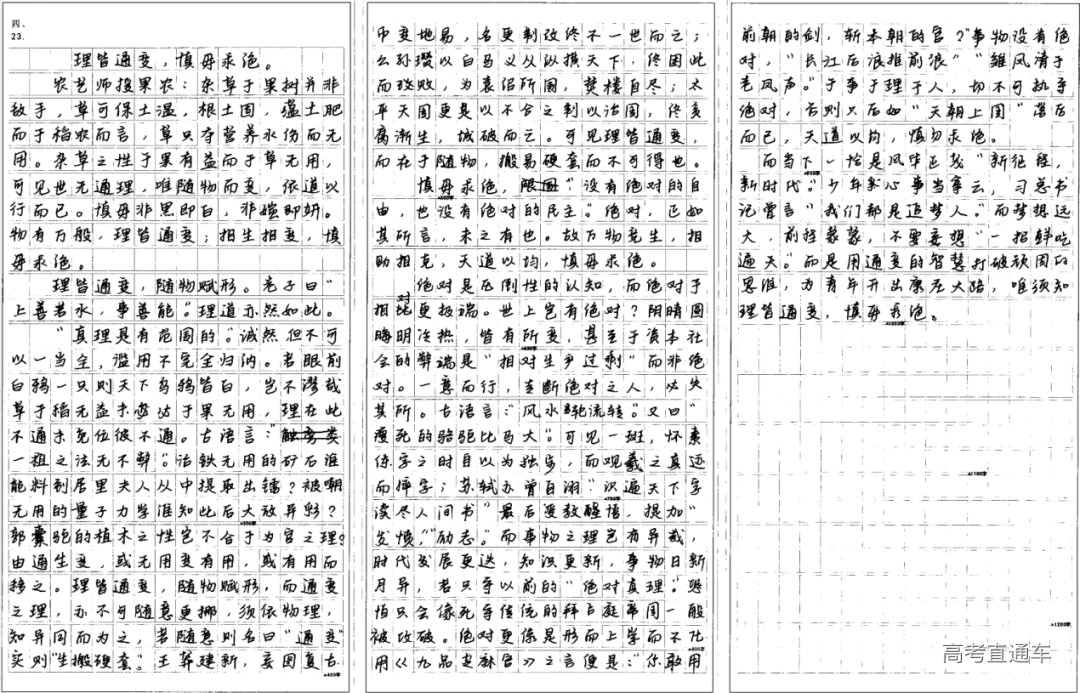 四、
23.
理皆通变，慎毋求绝。
农艺师授果农：杂草于果树并非
敌手，草可保土温，根土固，蕴土肥
而于稻农而言，草只夺营养水伤而无
用。杂草之性于果有益而于草无用，
可见世无通理，唯随物而变，依道以
行而已。慎毋非黑即白，非媸即妍。
物有万般，理皆通变；相生相变，慎
毋求绝。
理皆通变，随物赋形。老子曰"
上善若水，事善能。"理道亦然如此。
"真理是有范围的。"诚然但不可
以一当全，滥用不完全归纳。若眼前
白鸦一只则天下乌鸦皆白，岂不谬哉
草于稻无益未必达于果无用，理在此
不通未克位彼不通。古语言："
一祖之法无不弊。"沾铁无用的矿石谁
能料到居里夫人从中提取出镭？被嘲
无用的量子力学谁知此后大放异彩？
郭橐驼的植木之性岂不合于为官之理？
由通生变，或无用变有用，或有用而
移之。理皆通变，随物赋形，而通变
之理，亦不可随意更挪，须依物理，
知异同而为之，若随意则名曰"通变"
实则"生搬硬套"。王莽建新，妄图复古
币变地易，名更制改终不一世而亡；
公孙瓒以白马义从纵横天下，终因此
而致败，为袁绍所围，焚楼自尽；太
平天国更是以不合之制以治国，终亥
腐渐生，城破而亡。可见理皆通变，
而在于随物，搬易硬套而不可得也。
慎毋求绝，"没有绝对的自
由，也没有绝对的民主。"绝对，正如
其所言，未之有也。故万物竞生，相
助相克，天道以均，慎毋求绝。
绝对是压倒性的认知，而绝对于
相对比更极端。世上岂有绝对？阴晴圆
晦明冷热，皆有所变，甚至于资本社
会的弊端是"相对生产过剩"而非绝
对。一意而行，妄断绝对之人，必失
其所。古语言："风水轮流转。"又曰"
瘦死的骆驼比马大。"可见一斑，怀素
练字之时自以为独步，而观羲之真迹
而悻字；苏轼亦曾自诩"识遍天下字
读尽人间书"最后受教醒悟，提加"
发愤""励志。"而事物之理岂有异哉，
时代发展更迭，知识更新，事物日新
月异，若只守以前的"绝对真理"。恐
怕只会像死守传统的拜占庭帝国一般
被攻破。绝对更像是形而上学而不化
用《九品芝麻官》之言便是："你敢用
前朝的剑，斩本朝的官？"事物没有绝
对，"长江后浪推前浪""雏凤清于
老凤声。"于事于理于人，切不可执守
绝对，否则只后如"天朝上国"落后
而已，天道以均，慎勿求绝。
而当下一恰是风华正茂"新征程，
新时代。"少年心事当拿云，习总书
记曾言"我们都是追梦人。"而梦想远
大，前路蒙蒙，不要妄想"一招鲜吃
遍天。"而是用通变的智慧打破顽固的
思维，为青年开出康庄大路，唯须知
理皆通变，慎毋求绝。
高考直通车